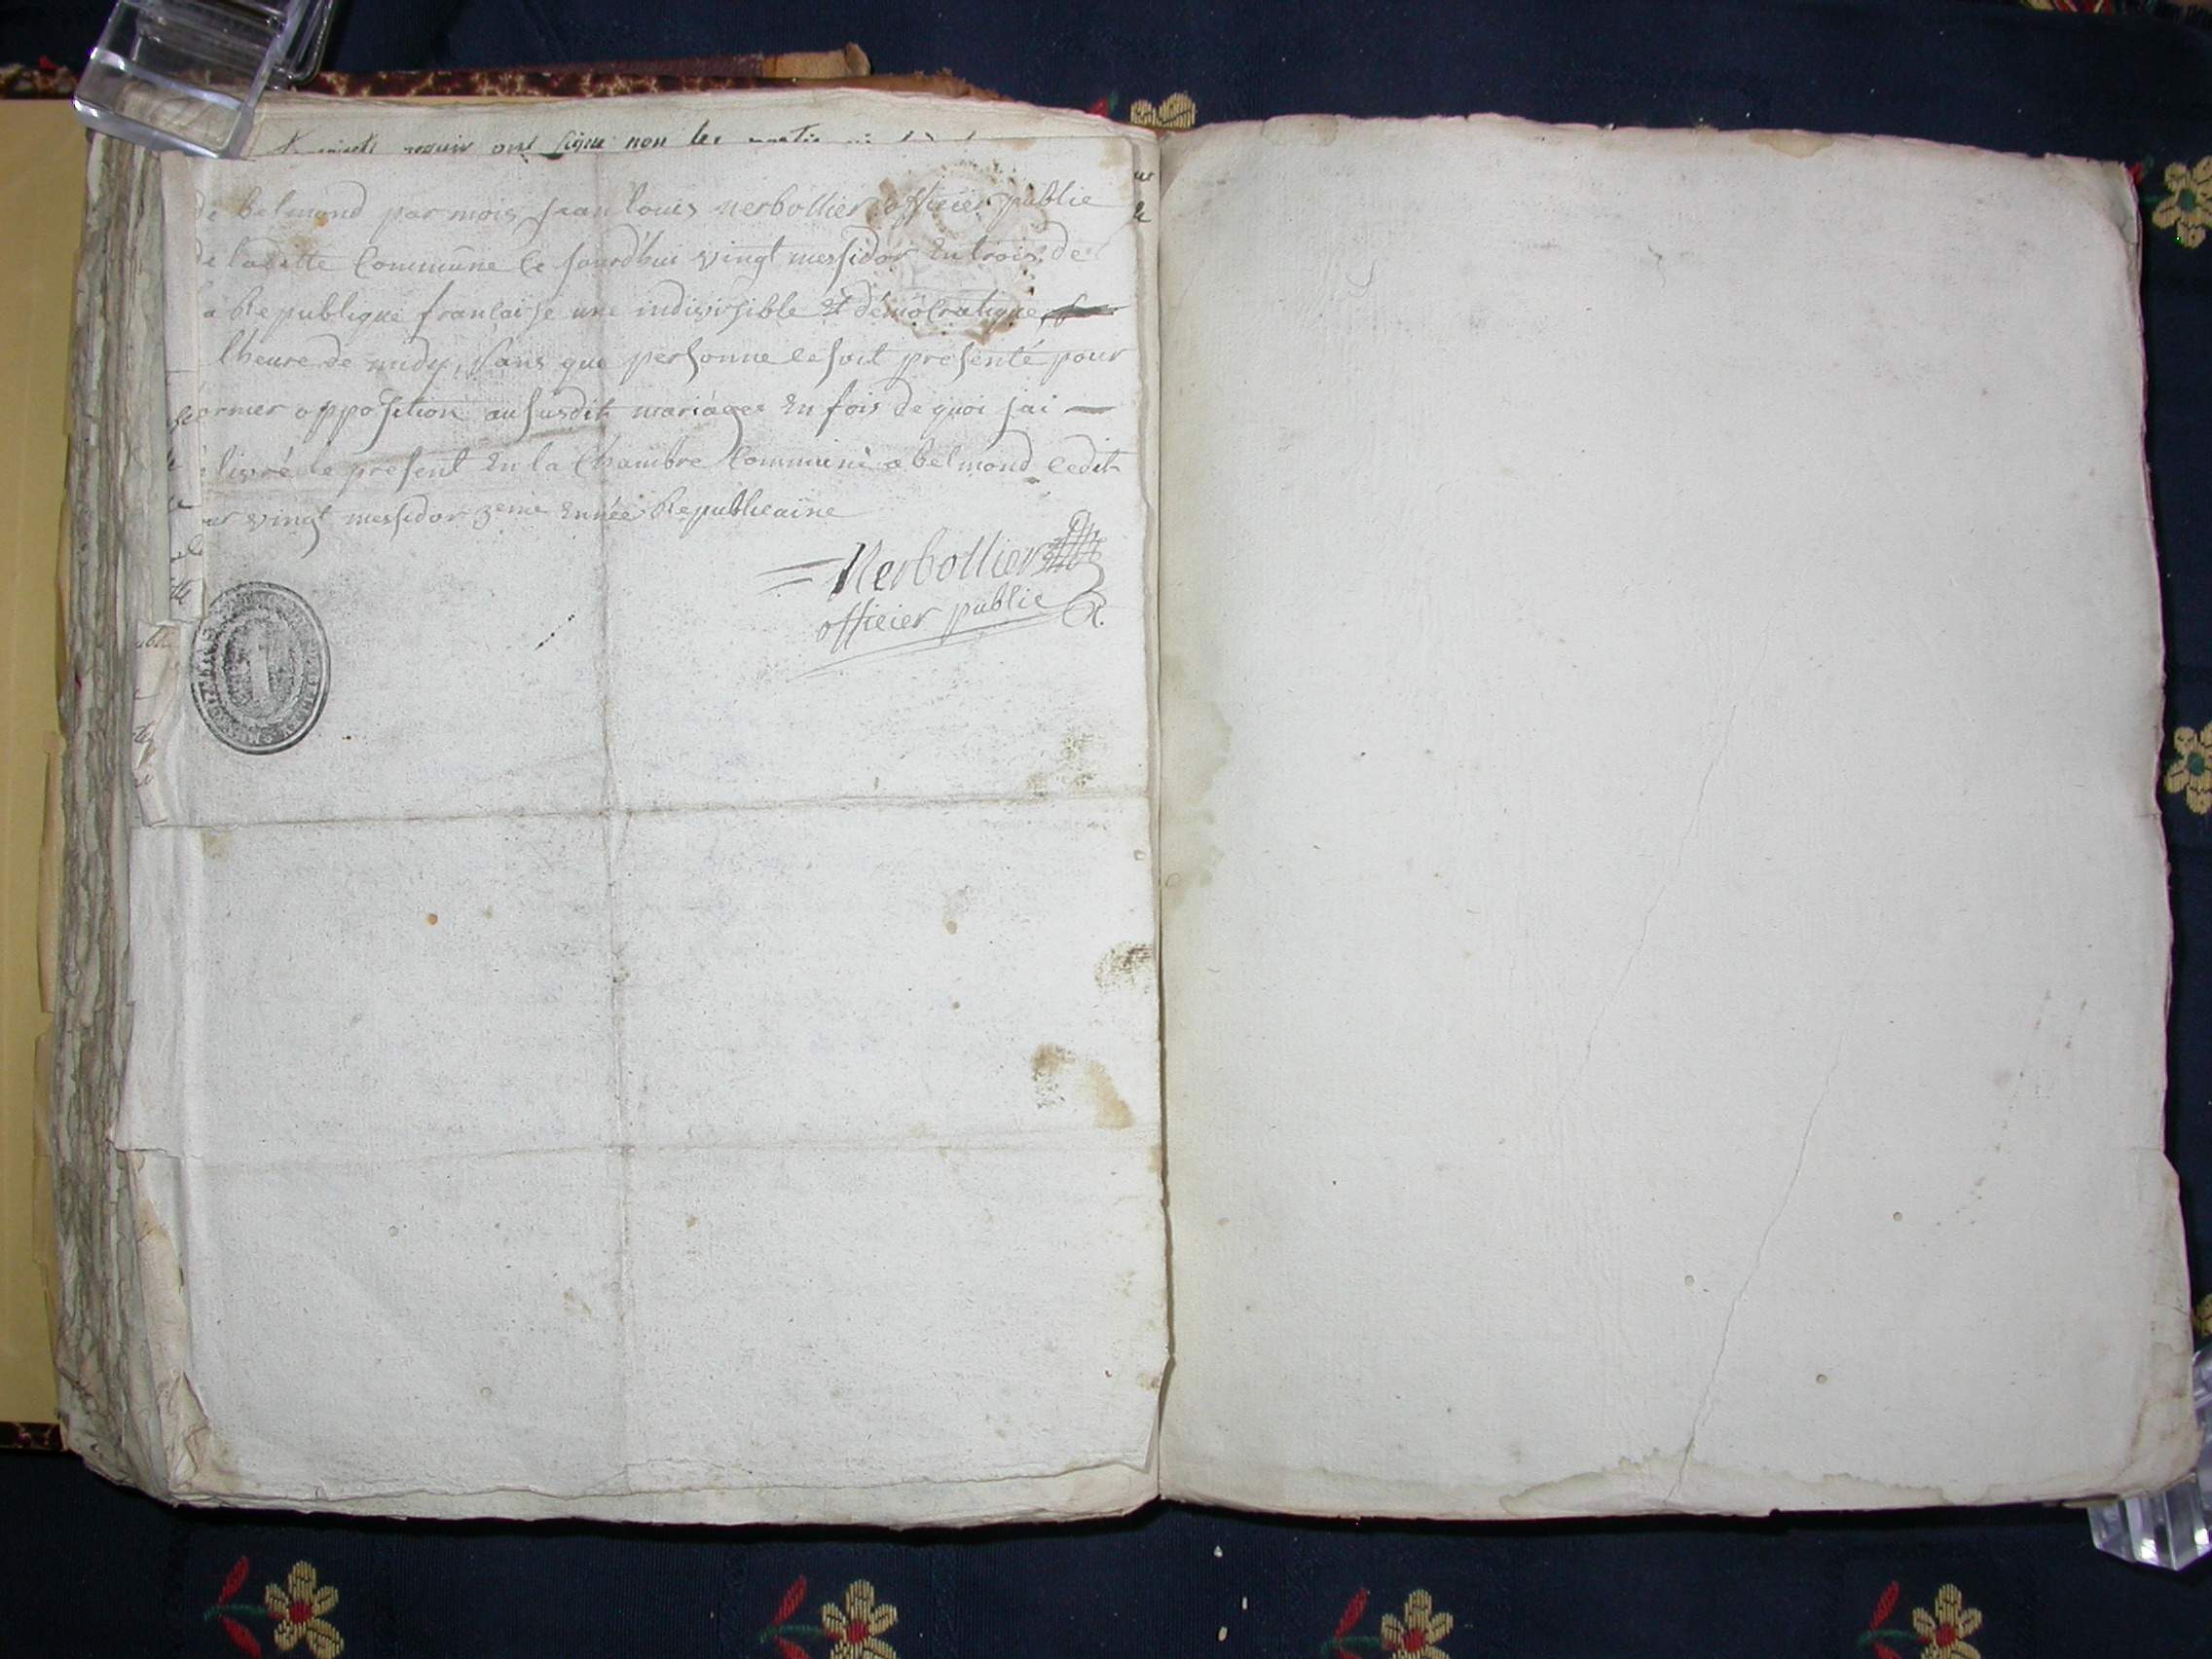 requir ont signé non les
de belmond par mois jean louis nerbollier officier publie
de laditte Commune Ce jourd'hui vingt messidor En trois de
la Republique francaise une indivisible Et démocratique
lheure de midy, sans que personne ce soit presenté pour
former opposition au susdit mariage En fois de quoi jai
délivré le present En la Chambre Commune a belmond Cedit
jour vingt messidor 3eme Année Republicaine
Nerbollier
officier publie